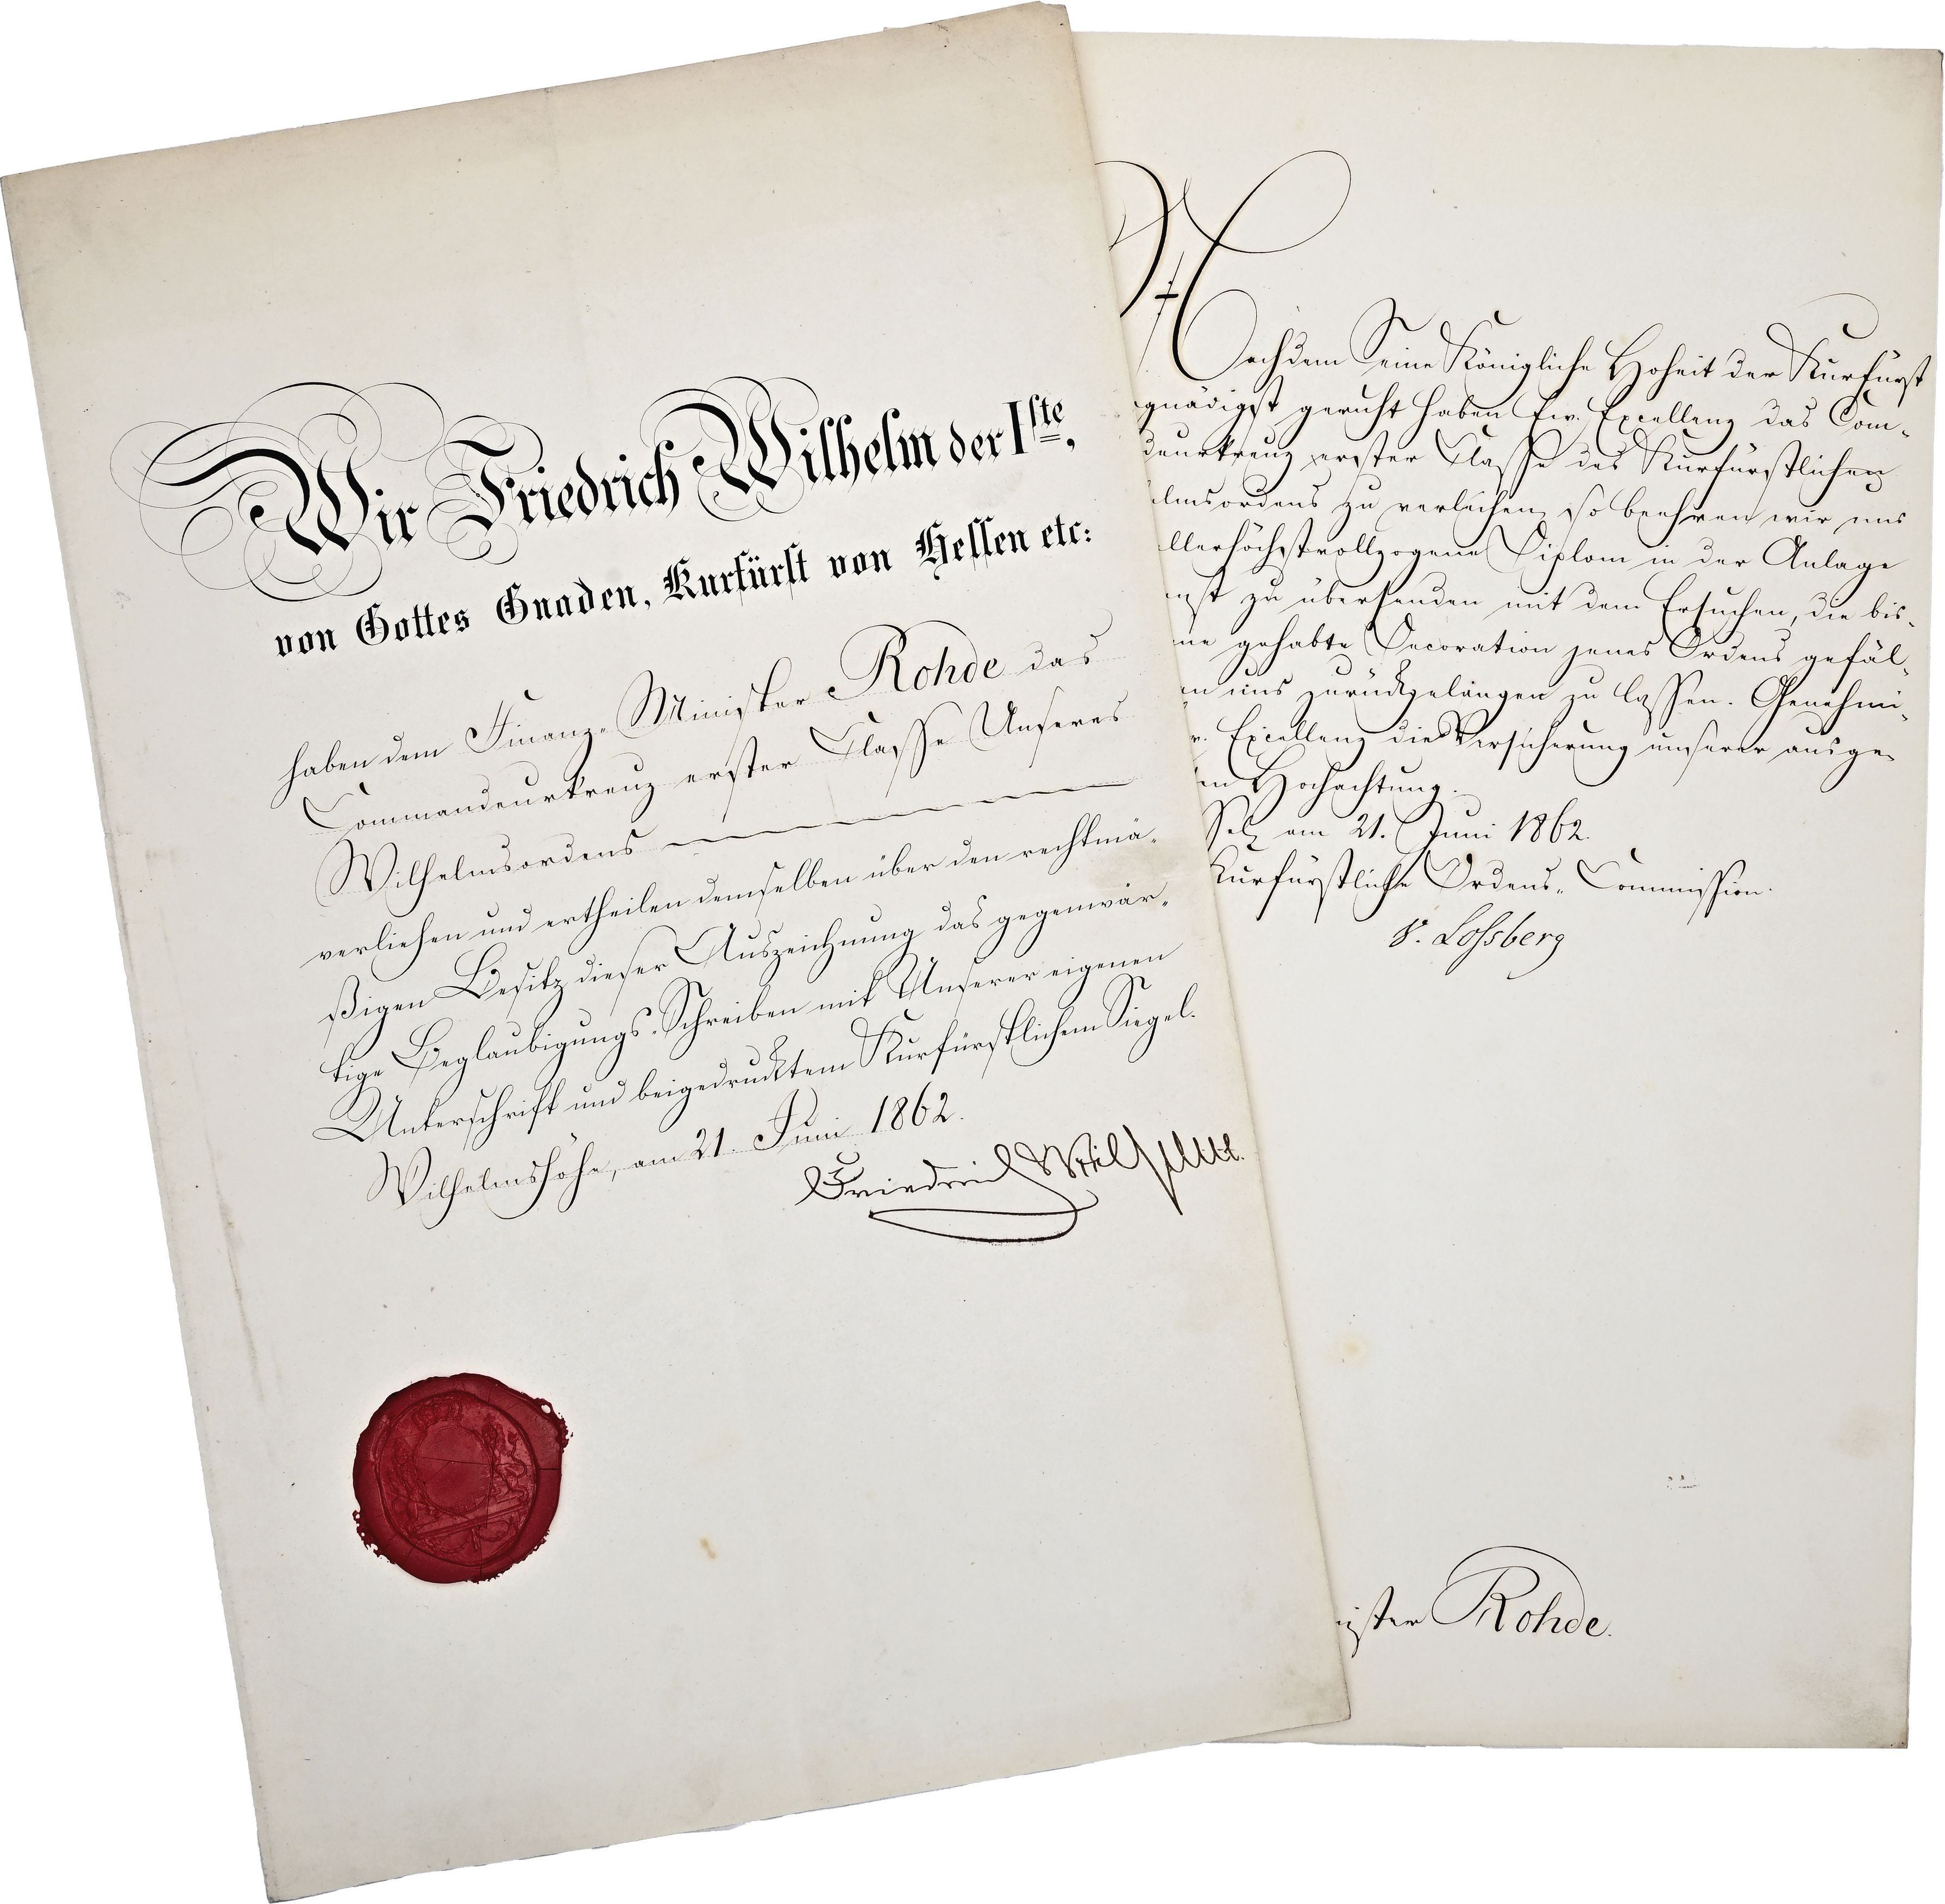 Wir Friedrich Wilhelm der Iste,
von Gottes Gnaden, Kurfürst von Hessen etc:
haben dem Finanz-Minister Rohde das
Commandeurkreuz erster Classe Unseres
Wilhelmsordens
verliehen und ertheilen demselben über den rechtmä-
ßigen Besitz dieser Auszeichnung das gegenwär-
tige Beglaubigungs-Schreiben mit Unserer eigenen
Unterschrift und beigedrucktem Kurfürstlichem Siegel.
Wilhelmshöhe, am 21. Juni 1862.
Friedrich Wilhelm.
Nachdem Seine Königliche Hoheit der Kurfürst
gnädigst geruht haben Ew. Excellenz das Com-
deurkreuz erster Classe des Kurfürstlichen
lmsordens zu verleihen, so beehren wir uns
llerhöchstvollzogene Diplom in der Anlage
nst zu übersenden mit dem Ersuchen, die bis-
ne gehabte Decoration jenes Ordens gefäl-
an uns zurückgelangen zu lassen. Genehmi-
w. Excellenz die Versicherung unserer ausge-
en Hochachtung.
ssel, am 21. Juni 1862.
Kurfürstliche Ordens-Commission.
v. Lossberg
ister Rohde.